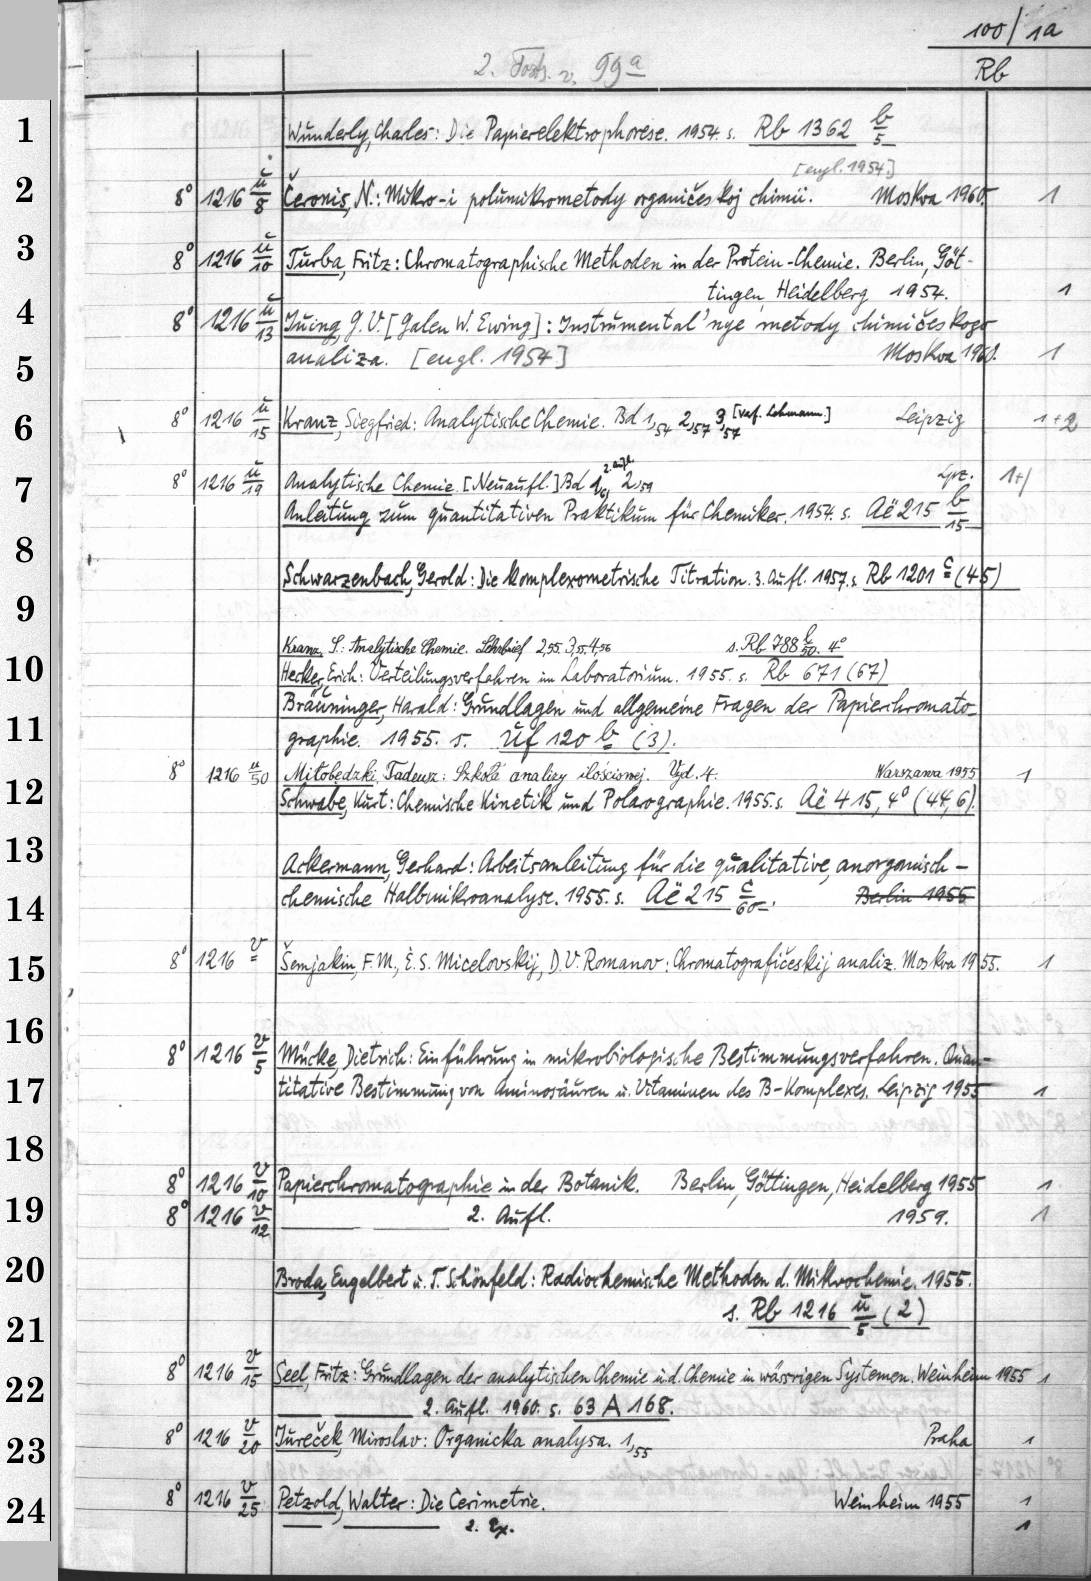 100/1a
2. Forts. v. 99a
Rb
1
Wunderly, Charles: Die Papierelektrophorese. 1954. s. Rb 1362 b/5
[engl. 1954]
2
8° 1216 ü/8 Čeronis, N.: Mikro-i polumikrometody organičeskoj chimii. Moskva 1960. 1
3
8° 1216 ü/10 Turba, Fritz: Chromatographische Methoden in der Protein-Chemie. Berlin, Göt-
tingen, Heidelberg 1954. 1
4
8° 1216 ü/13 Juing, G. V. [Galen W. Ewing]: Instrumental'nye metody chimičeskogo
analiza. [engl. 1954] Moskva 1960. 1
5
6
8° 1216 ü/15 Kranz, Siegfried: Analytische Chemie. Bd 1,54 2,57 3,57 [verf. Lehmann.] Leipzig 1+2
7
8° 1216 ü/19 Analytische Chemie. [Neuaufl.] Bd 1, 2. Aufl. 2,59 Lpz. 1+1
Anleitung zum quantitativen Praktikum für Chemiker. 1954. s. Aë 215 b/15
8
Schwarzenbach, Gerold: Die komplexometrische Titration. 3. Aufl. 1957. s. Rb 1201 c (45)
9
Kranz, S.: Analytische Chemie. Lehrbrief 2,55. 3,55. 4,56 s. Rb 788 l/50. 4°
10
Hecker, Erich: Verteilungsverfahren im Laboratorium. 1955. s. Rb 671 (67)
Bräuninger, Harald: Grundlagen und allgemeine Fragen der Papierchromato-
11
graphie. 1955. s. Uf 120 b (3).
8° 1216 ü/50 Miłobędzki, Tadeusz: Szkoła analizy ilościowej. Wyd. 4. Warszawa 1955 1
12
Schwabe, Kurt: Chemische Kinetik und Polarographie. 1955. s. Aë 415, 4° (44,6).
13
Ackermann, Gerhard: Arbeitsanleitung für die qualitative, anorganisch-
14
chemische Halbmikroanalyse. 1955. s. Aë 215 c/60. Berlin 1955
15
8° 1216 v Šemjakin, F. M., E. S. Micelovskij, D. V. Romanov: Chromatografičeskij analiz. Moskva 1955. 1
16
8° 1216 v/5 Mücke, Dietrich: Einführung in mikrobiologische Bestimmungsverfahren. Quan-
17
titative Bestimmung von Aminosäuren u. Vitaminen des B-Komplexes. Leipzig 1955 1
18
8° 1216 v/10 Papierchromatographie in der Botanik. Berlin, Göttingen, Heidelberg 1955 1
19
8° 1216 v/12 2. Aufl. 1959. 1
20
Broda, Engelbert u. T. Schönfeld: Radiochemische Methoden d. Mikrochemie. 1955.
s. Rb 1216 ü/5 (2)
21
8° 1216 v/15 Seel, Fritz: Grundlagen der analytischen Chemie u. d. Chemie in wässrigen Systemen. Weinheim 1955 1
22
2. Aufl. 1960. s. 63 A 168.
23
8° 1216 v/20 Jureček, Miroslav: Organicka analysa. 1,55 Praha 1
24
8° 1216 v/25 Petzold, Walter: Die Cerimetrie. Weinheim 1955 1
2. Ex. 1